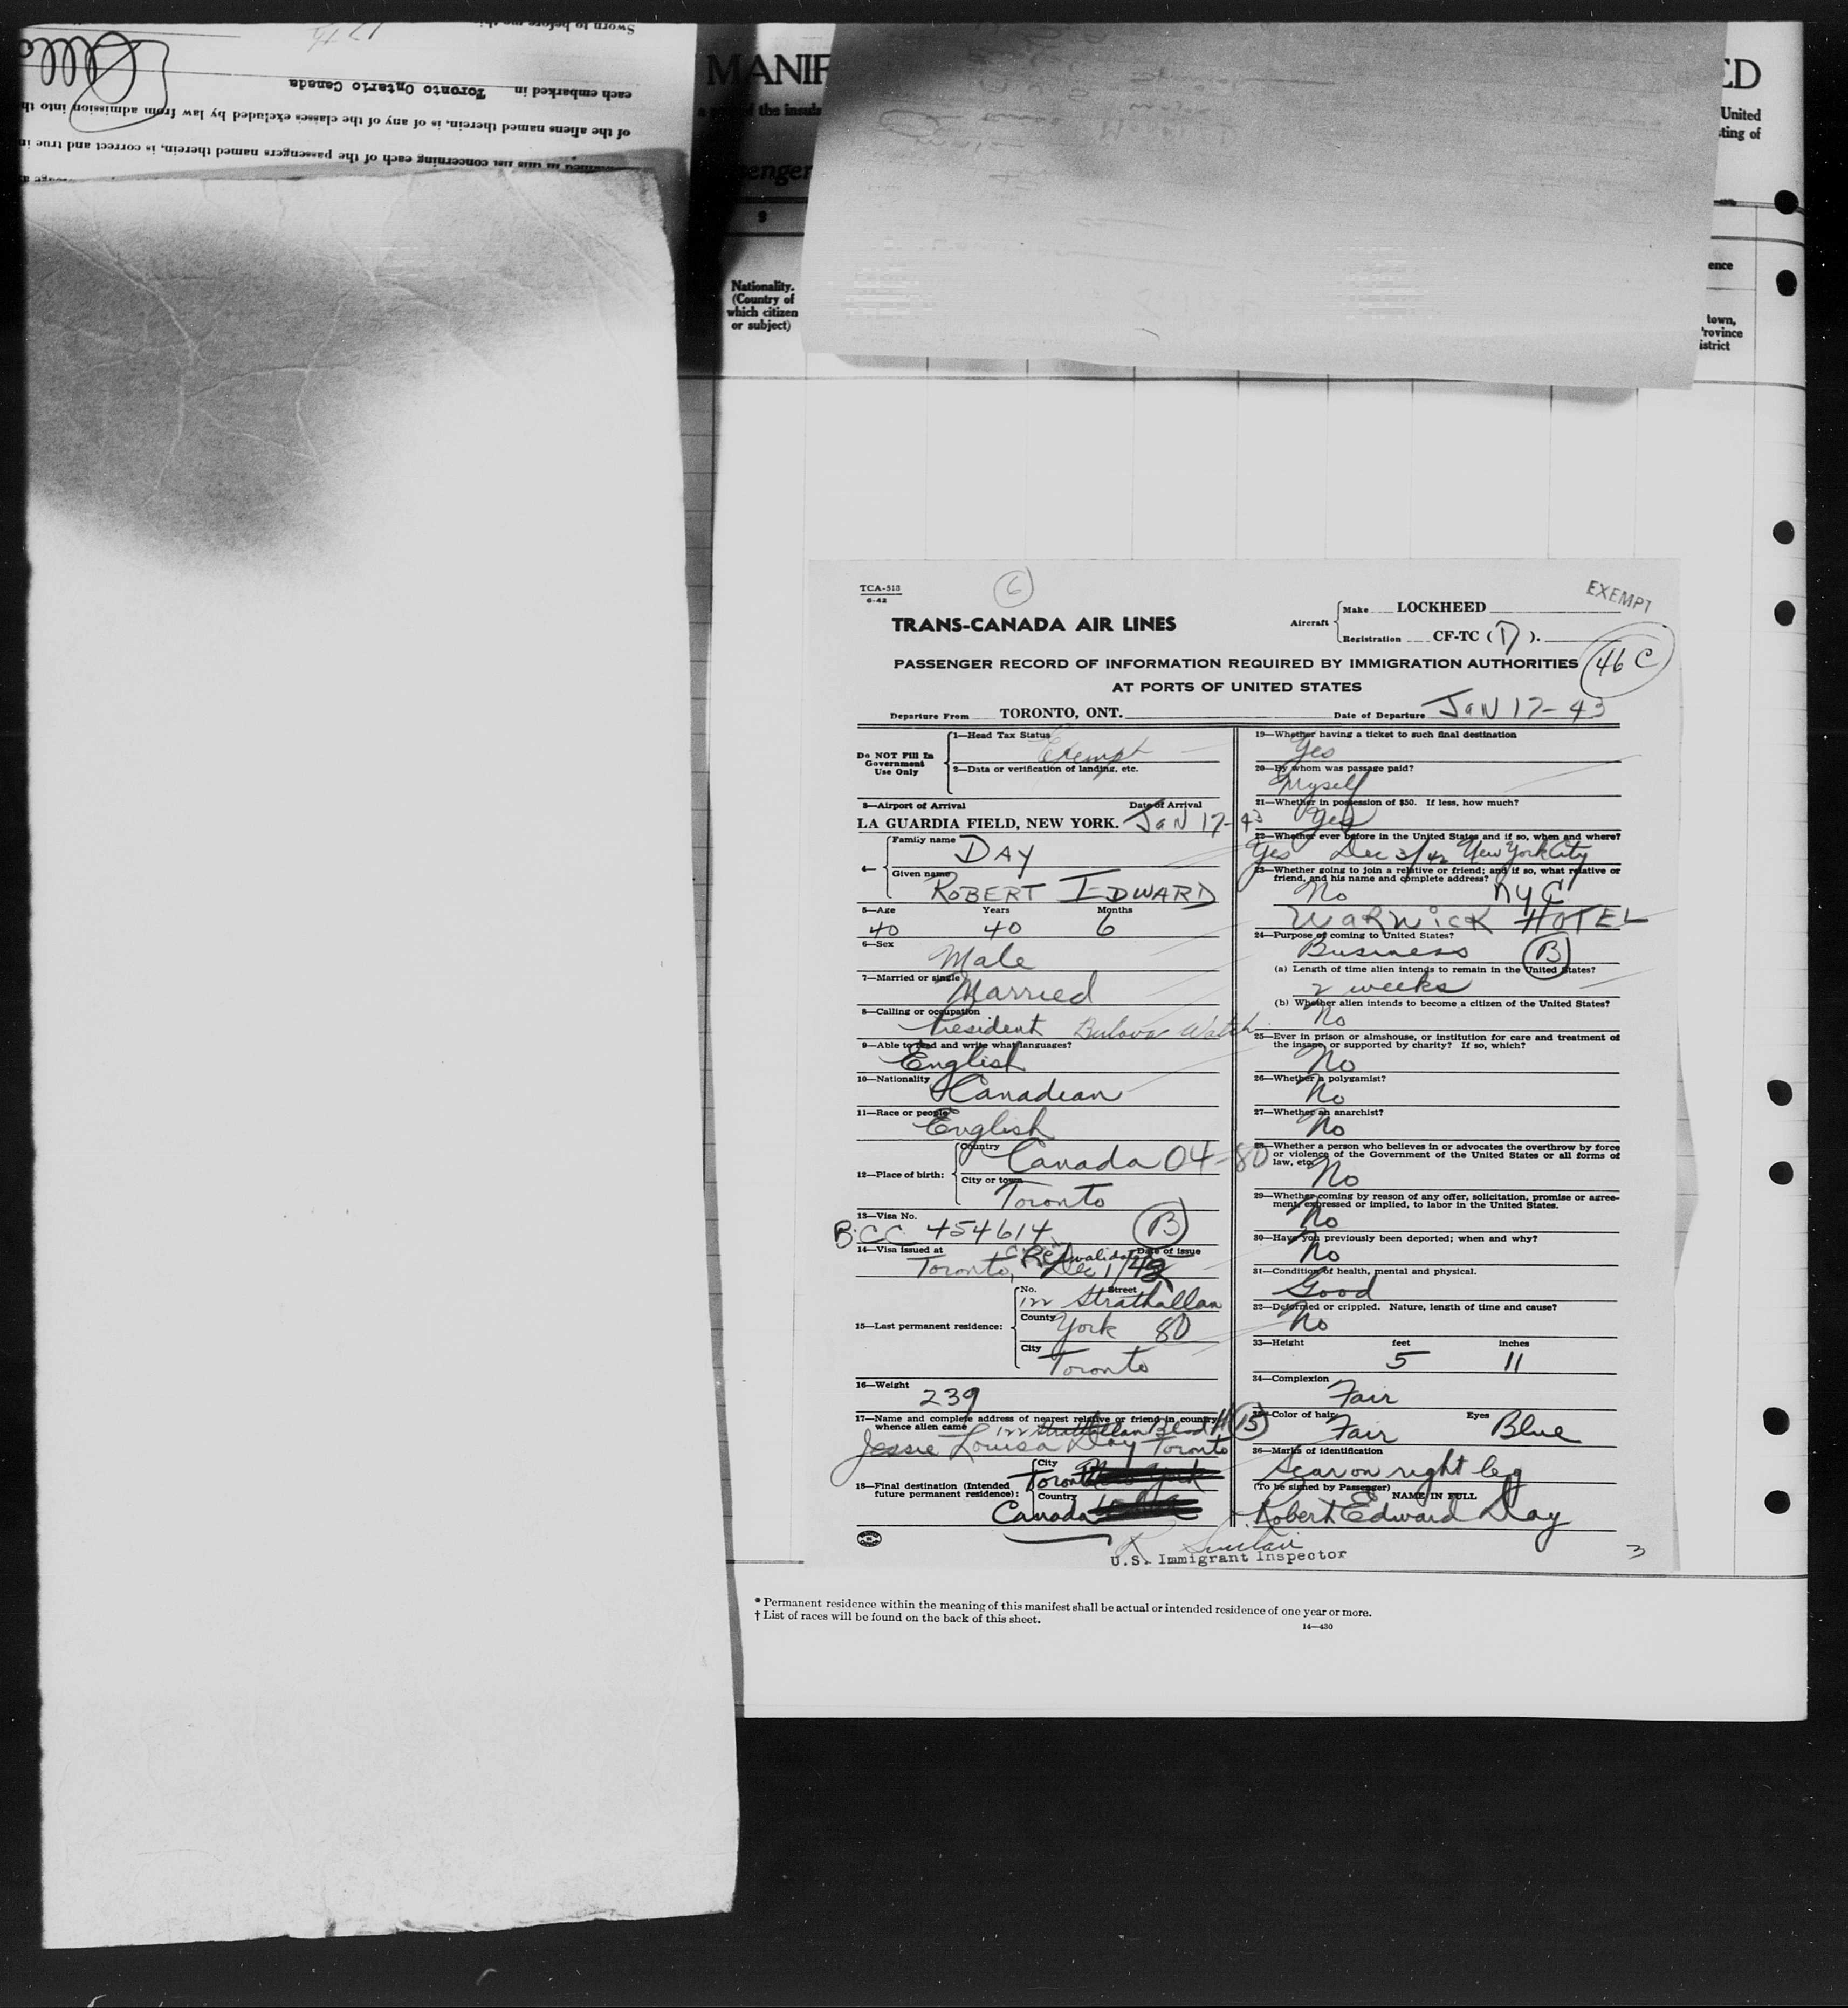 Sworn to before me this
17th
each embarked in Toronto Ontario Canada
of the aliens named therein, is of any of the classes excluded by law from admission into th
concerning each of the passengers named therein, is correct and true in
MANIF
ED
the insula
United
ting of
senger
9
Nationality.
(Country of
which citizen
or subject)
ence
town,
rovince
istrict
TCA-513
6-42
6
EXEMPT
TRANS-CANADA AIR LINES
Aircraft
Make LOCKHEED
Registration CF-TC (D).
PASSENGER RECORD OF INFORMATION REQUIRED BY IMMIGRATION AUTHORITIES
46 C
AT PORTS OF UNITED STATES
Departure From TORONTO, ONT.
Date of Departure JAN 17-43
Do NOT Fill In
Government
Use Only
1—Head Tax Status Exempt
2—Data or verification of landing, etc.
3—Airport of Arrival Date of Arrival
LA GUARDIA FIELD, NEW YORK. JAN 17-43
4— Family name DAY
Given name ROBERT EDWARD
5—Age Years Months
40 40 6
6—Sex Male
7—Married or single Married
8—Calling or occupation
President Bulova Watch
9—Able to read and write what languages?
English
10—Nationality Canadian
11—Race or people English
12—Place of birth:
Country Canada 04-80
City or town Toronto
13—Visa No.
B.C.C. 454614 B
14—Visa issued at Date of issue
Revalidated
Toronto, Dec 1/42
15—Last permanent residence:
No. Street
122 Strathallan
County York 80
City Toronto
16—Weight 239
17—Name and complete address of nearest relative or friend in country
whence alien came 122 Strathallan Blvd
Jessie Louisa Day Toronto
18—Final destination (Intended
future permanent residence):
City Toronto New York
Country
Canada
19—Whether having a ticket to such final destination
Yes
20—By whom was passage paid?
Myself
21—Whether in possession of $50. If less, how much?
Yes
22—Whether ever before in the United States and if so, when and where?
Yes Dec 3/42 New York City
23—Whether going to join a relative or friend; and if so, what relative or
friend, and his name and complete address?
No NYC
WARWICK HOTEL
24—Purpose of coming to United States?
Business B
(a) Length of time alien intends to remain in the United States?
2 weeks
(b) Whether alien intends to become a citizen of the United States?
No
25—Ever in prison or almshouse, or institution for care and treatment of
the insane, or supported by charity? If so, which?
No
26—Whether a polygamist?
No
27—Whether an anarchist?
No
28—Whether a person who believes in or advocates the overthrow by force
or violence of the Government of the United States or all forms of
law, etc. No
29—Whether coming by reason of any offer, solicitation, promise or agree-
ment, expressed or implied, to labor in the United States.
No
30—Have you previously been deported; when and why?
No
31—Condition of health, mental and physical.
Good
32—Deformed or crippled. Nature, length of time and cause?
No
33—Height feet inches
5 11
34—Complexion Fair
35—Color of hair Fair Eyes Blue
36—Marks of identification
Scar on right leg
(To be signed by Passenger)
NAME IN FULL
Robert Edward Day
R Sinclair
U.S. Immigrant Inspector
3
* Permanent residence within the meaning of this manifest shall be actual or intended residence of one year or more.
† List of races will be found on the back of this sheet.
14—430